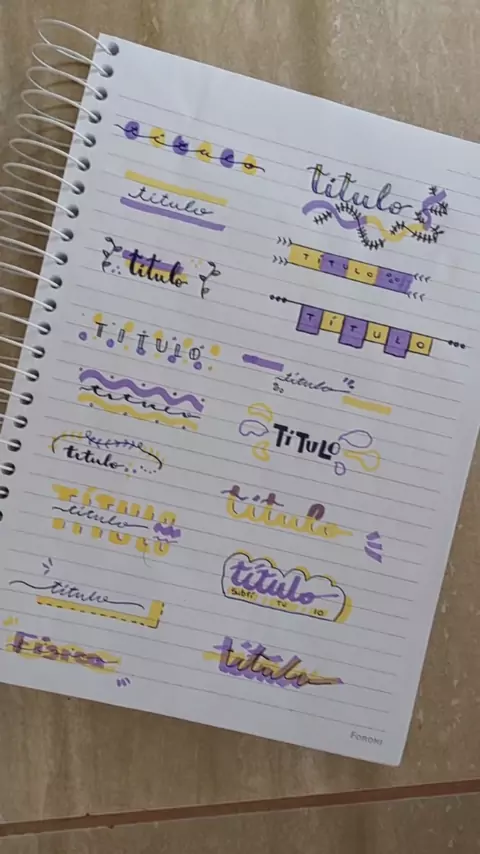 título
título
título
TITULO
título
título
TÍTULO
título
título
Física
título
TITULO
TÍTULO
título
TÍTULO
título
título
Subtítulo
título
Foroni